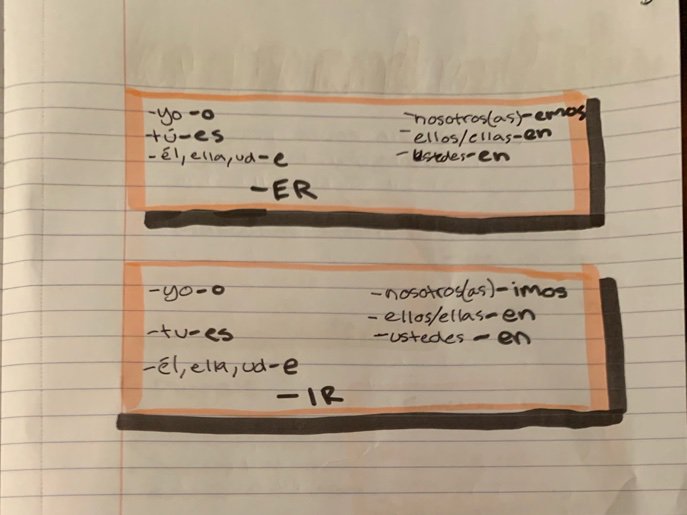 -yo-o
tú-es
-él, ella, ud-e
-nosotros(as)-emos
-ellos/ellas-en
-ustedes-en
-ER
-yo-o
-tu-es
-Él, ella, ud-e
-nosotros(as)-imos
-ellos/ellas-en
-ustedes-en
-IR